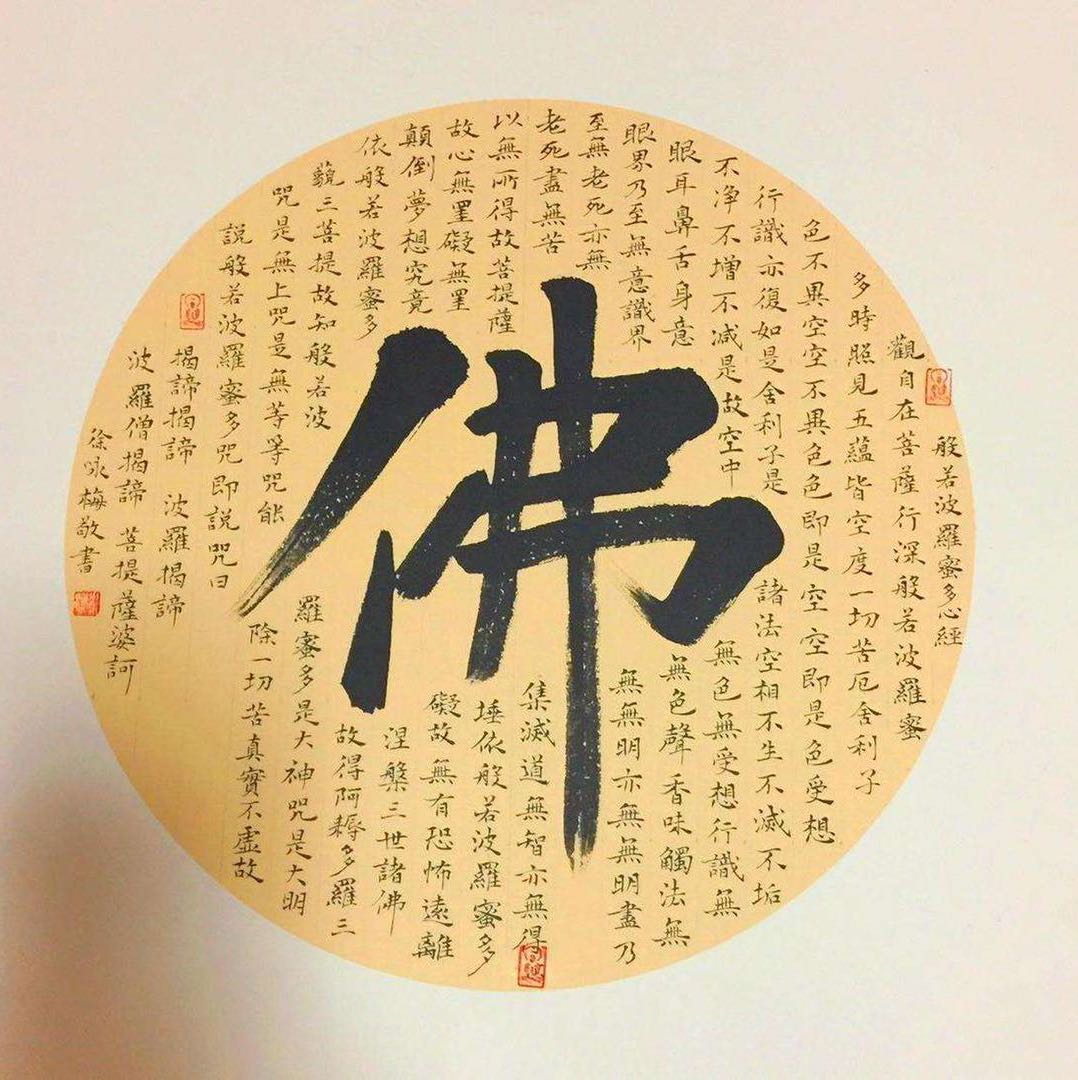 般若波羅蜜多心經
觀自在菩薩行深般若波羅蜜
多時照見五蘊皆空度一切苦厄舍利子
色不異空空不異色色即是空空即是色受想
行識亦復如是舍利子是
諸法空相不生不滅不垢
不净不增不减是故空中
無色無受想行識無
眼耳鼻舌身意
無色聲香味觸法無
眼界乃至無意識界
無無明亦無無明盡乃
至無老死亦無
老死盡無苦
集滅道無智亦無得
以無所得故菩提薩
埵依般若波羅蜜多
故心無罣礙無罣
礙故無有恐怖遠離
顛倒夢想究竟
涅槃三世諸佛
依般若波羅蜜多
故得阿耨多羅三
藐三菩提故知般若波
羅蜜多是大神咒是大明
咒是無上咒是無等等咒能
除一切苦真實不虛故
說般若波羅蜜多咒即說咒曰
揭諦揭諦 波羅揭諦
波羅僧揭諦 菩提薩婆訶
徐咏梅敬書
佛